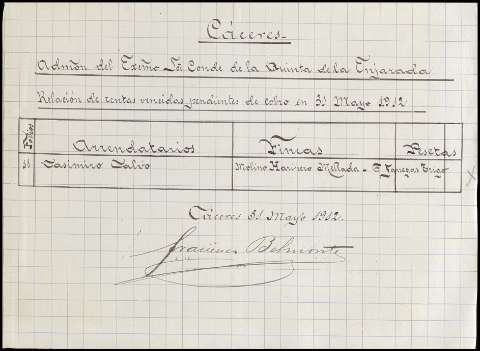 Cáceres.-
Admón del Exmo Sr Conde de la Quinta de la Enjarada
Relación de rentas vencidas pendientes de cobro en 31 Mayo 1912
Folios Arrendatarios Fincas Pesetas
Casimiro Calvo Molino Harinero Mellada - Fanegas Trigo
Cáceres 31 Mayo 1912.
Belmonte